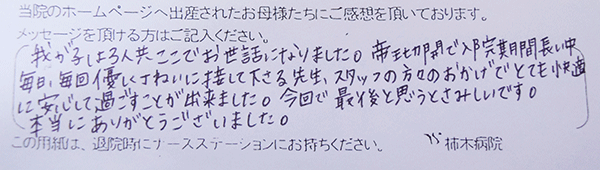 当院のホームページへ出産されたお母様たちにご感想を頂いております。
メッセージを頂ける方はご記入ください。
我が子は3人共ここでお世話になりました。帝王切開で入院期間長い中
毎日、毎回優しくていねいに接して下さる先生、スタッフの方々のおかげでとても快適
に安心して過ごすことが出来ました。今回で最後と思うとさみしいです。
本当にありがとうございました。
この用紙は、退院時にナースステーションにお持ちください。 柿木病院